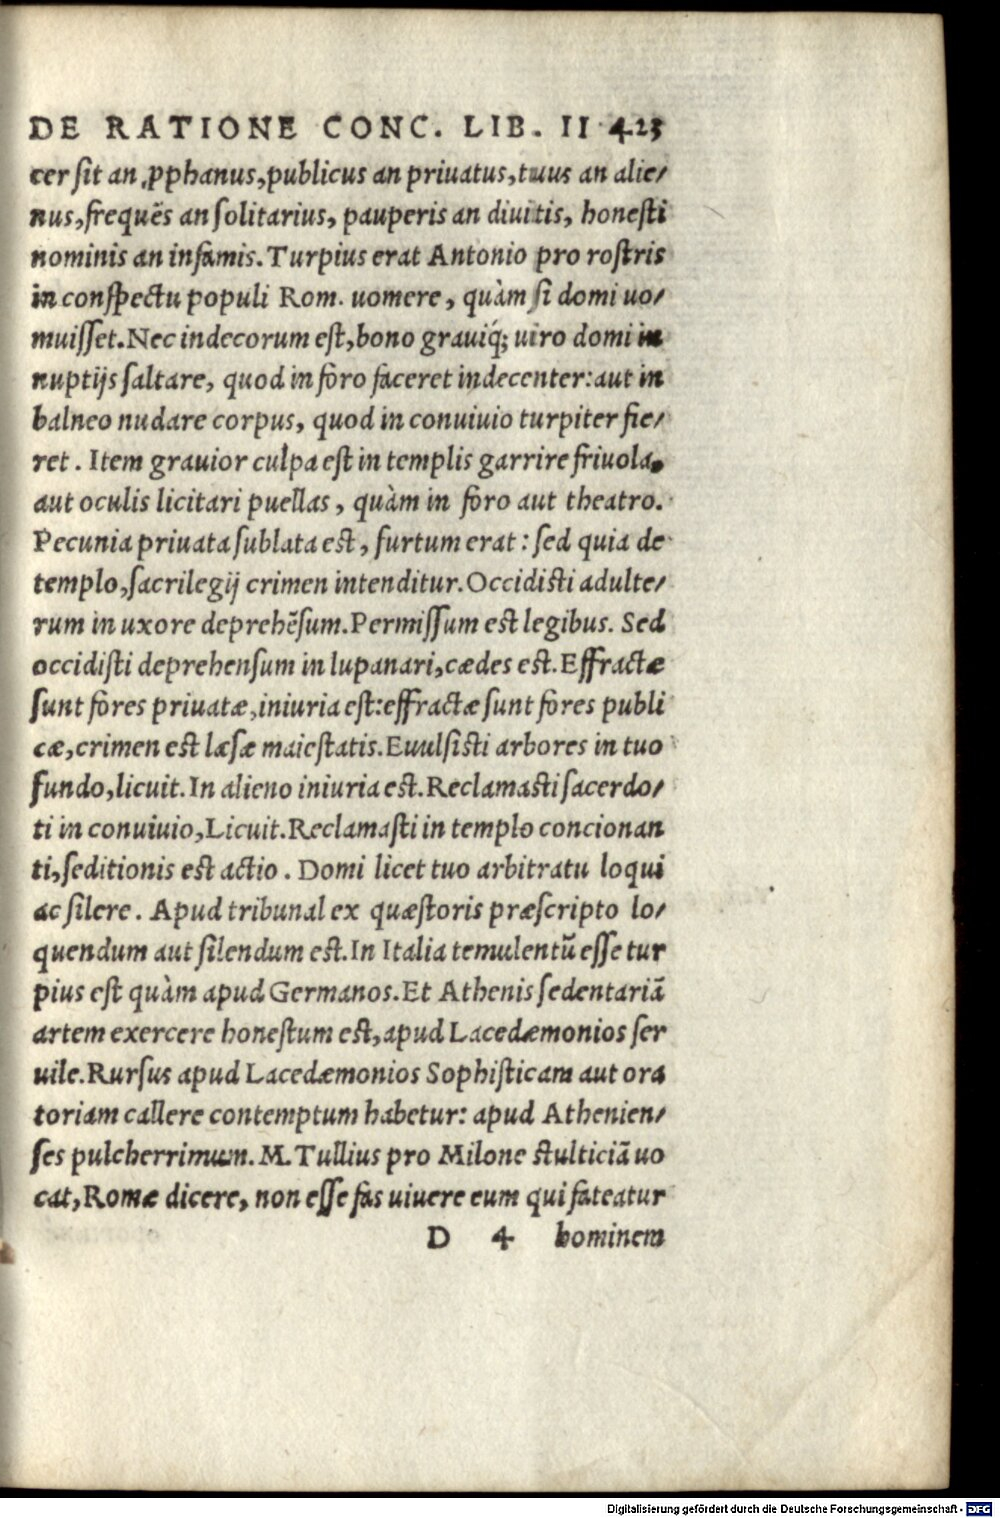 DE RATIONE CONC. LIB. II 423
cer sit an ꝓphanus, publicus an priuatus, tuus an alie/
nus, frequẽs an solitarius, pauperis an diuitis, honesti
nominis an infamis. Turpius erat Antonio pro rostris
in conspectu populi Rom. uomere, quàm si domi uo/
muisset. Nec indecorum est, bono grauiq́; uiro domi in
nuptijs saltare, quod in foro faceret indecenter: aut in
balneo nudare corpus, quod in conuiuio turpiter fie/
ret. Item grauior culpa est in templis garrire friuola,
aut oculis licitari puellas, quàm in foro aut theatro.
Pecunia priuata sublata est, furtum erat: sed quia de
templo, sacrilegij crimen intenditur. Occidisti adulte/
rum in uxore deprehẽsum. Permissum est legibus. Sed
occidisti deprehensum in lupanari, cædes est. Effractæ
sunt fores priuatæ, iniuria est: effractæ sunt fores publi
cæ, crimen est læsæ maiestatis. Euulsisti arbores in tuo
fundo, licuit. In alieno iniuria est. Reclamasti sacerdo/
ti in conuiuio, Licuit. Reclamasti in templo concionan
ti, seditionis est actio. Domi licet tuo arbitratu loqui
ac silere. Apud tribunal ex quæstoris præscripto lo/
quendum aut silendum est. In Italia temulentũ esse tur
pius est quàm apud Germanos. Et Athenis sedentariã
artem exercere honestum est, apud Lacedæmonios ser
uile. Rursus apud Lacedæmonios Sophisticam aut ora
toriam callere contemptum habetur: apud Athenien/
ses pulcherrimum. M. Tullius pro Milone stulticiã uo
cat, Romæ dicere, non esse fas uiuere eum qui fateatur
D 4 hominem
Digitalisierung gefördert durch die Deutsche Forschungsgemeinschaft - DFG